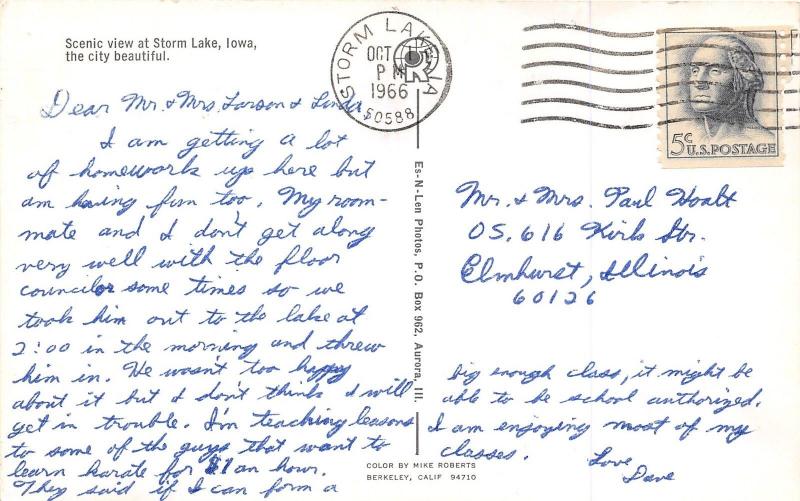 Scenic view at Storm Lake, Iowa,
the city beautiful.
STORM LAKE IA
OCT
PM
1966
50588
5¢ U.S. POSTAGE
Dear Mr. & Mrs. Larson & Linda
I am getting a lot
of homeworks up here but
am having fun too. My room-
mate and I don't get along
very well with the floor
councilor some times so we
took him out to the lake at
2:00 in the morning and threw
him in. He wasn't too happy
about it but I don't think I will
get in trouble. I'm teaching leasons
to some of the guys that want to
learn karate for $1 an hour.
They said if I can form a
big enough class, it might be
able to be school authorized.
I am enjoying most of my
classes.
Love
Dave
Es-N-Len Photos, P.O. Box 962, Aurora, Ill.
Mr. & Mrs. Paul
OS. 616 Kirk Str.
Elmhurst, Illinois
60126
COLOR BY MIKE ROBERTS
BERKELEY, CALIF 94710